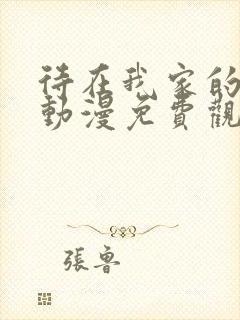 待在我家的
動漫免費觀
張魯